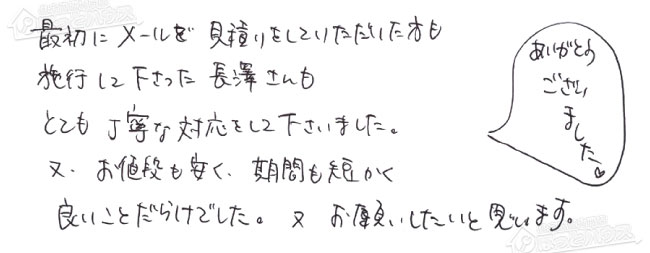 最初にメールで見積りをしていただいた方も
施行して下さった長澤さんも
とても丁寧な対応をして下さいました。
又、お値段も安く、期間も短かく
良いことだらけでした。又お願いしたいと思います。
ありがとう
ござい
ました♡